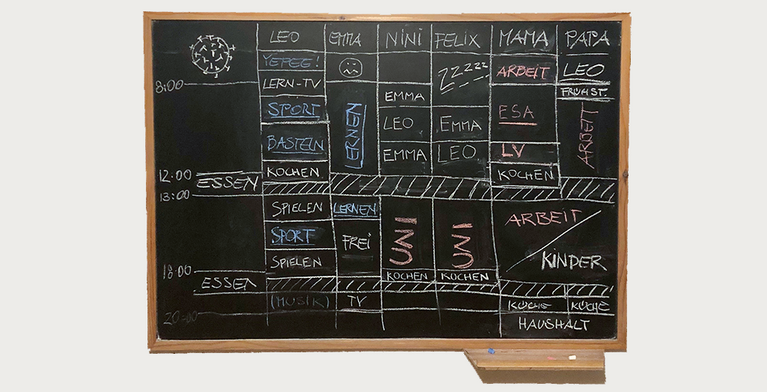 LEO EMMA NINI FELIX MAMA PAPA
YEPEG! ARBEIT LEO
ZZZZZZ
8:00 LERN-TV FRÜHST.
EMMA
SPORT LERNEN LEO EMMA ESA ARBEIT
BASTELN EMMA LEO LV
12:00 KOCHEN KOCHEN
ESSEN
13:00
SPIELEN LERNEN ARBEIT
SPORT FREI
SPIELEN KINDER
18:00 KOCHEN KOCHEN
ESSEN
(MUSIK) TV KÜCHE KÜCHE
20:00 HAUSHALT